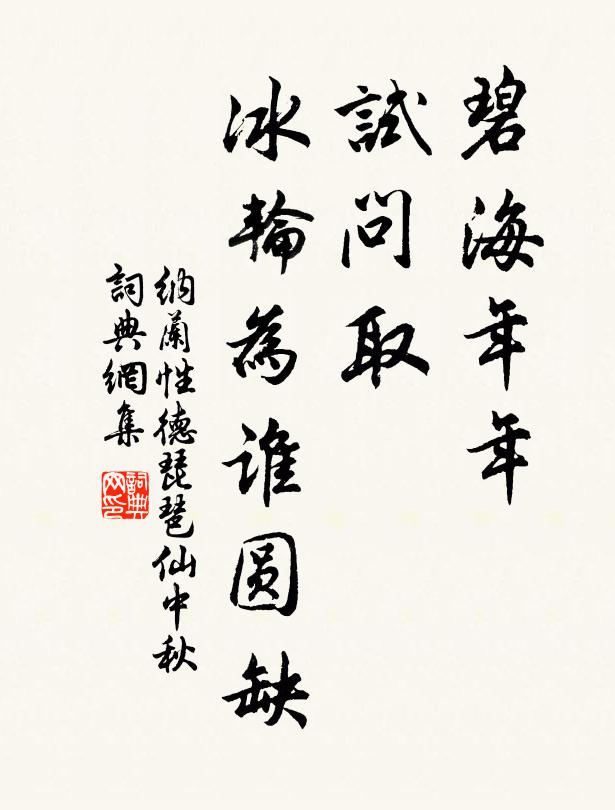 碧海年年
試問取
冰輪為誰圆缺
纳蘭性德琵琶仙中秋
詞典網集
詞典网印